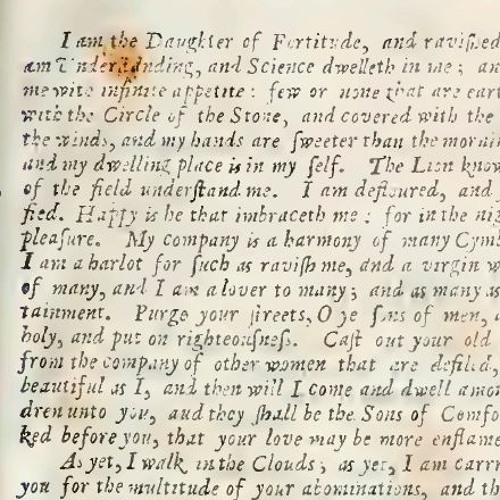 I am the Daughter of Fortitude, and raviſhed
am Underſtanding, and Science dwelleth in me; an
me with infinite appetite: few or none that are eart
with the Circle of the Stone, and covered with the
the winds, and my hands are ſweeter than the morni
and my dwelling place is in my ſelf. The Lion know
of the field underſtand me. I am defloured, and
fied. Happy is he that imbraceth me: for in the nig
pleaſure. My company is a harmony of many Cymb
I am a harlot for ſuch as raviſh me, and a virgin w
of many, and I am a lover to many; and as many as
tainment. Purge your ſtreets, O ye ſons of men,
holy, and put on righteouſneſs. Caſt out your old
from the company of other women that are defiled,
beautiful as I, and then will I come and dwell amon
dren unto you, and they ſhall be the Sons of Comfo
ked before you, that your love may be more enflame
As yet, I walk in the Clouds; as yet, I am carri
you for the multitude of your abominations, and th